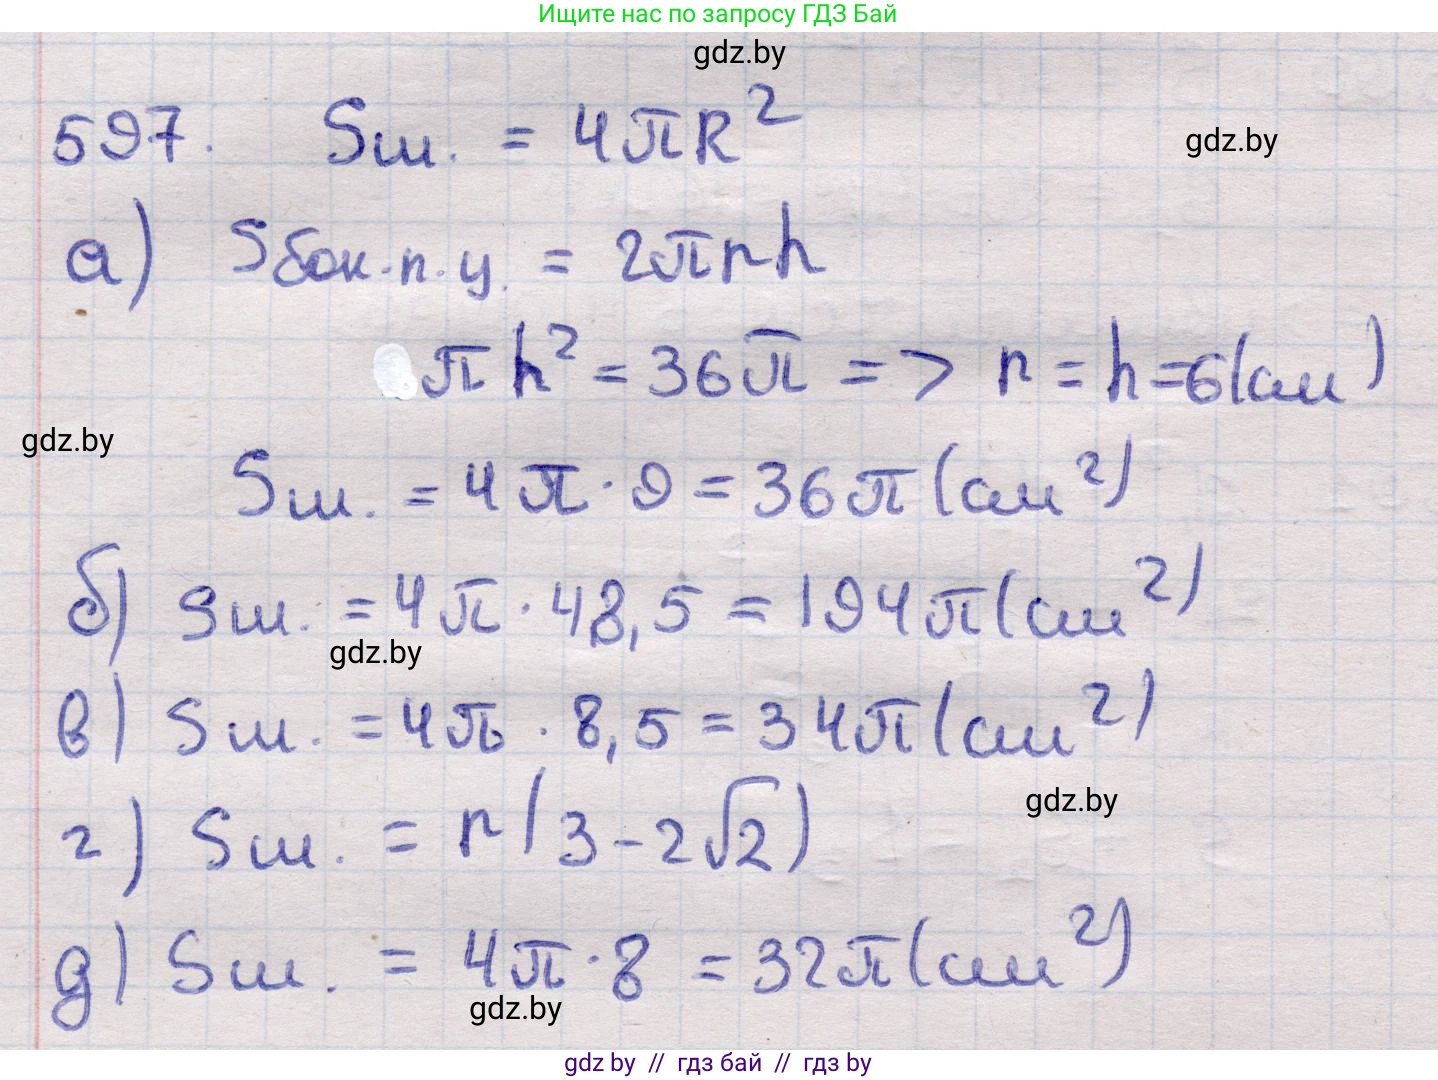 Ищите нас по запросу ГДЗ Бай
gdz.by
597. Sш. = 4πR²
gdz.by
а) Sбок.п.ц. = 2πrh
πh² = 36π => r = h = 6(см)
gdz.by
Sш. = 4π · 9 = 36π (см²)
б) Sш. = 4π · 48,5 = 194π (см²)
gdz.by
в) Sш. = 4π · 8,5 = 34π (см²)
gdz.by
г) Sш. = r(3-2√2)
д) Sш. = 4π · 8 = 32π (см²)
gdz.by
gdz by // гдз бай // гдз by